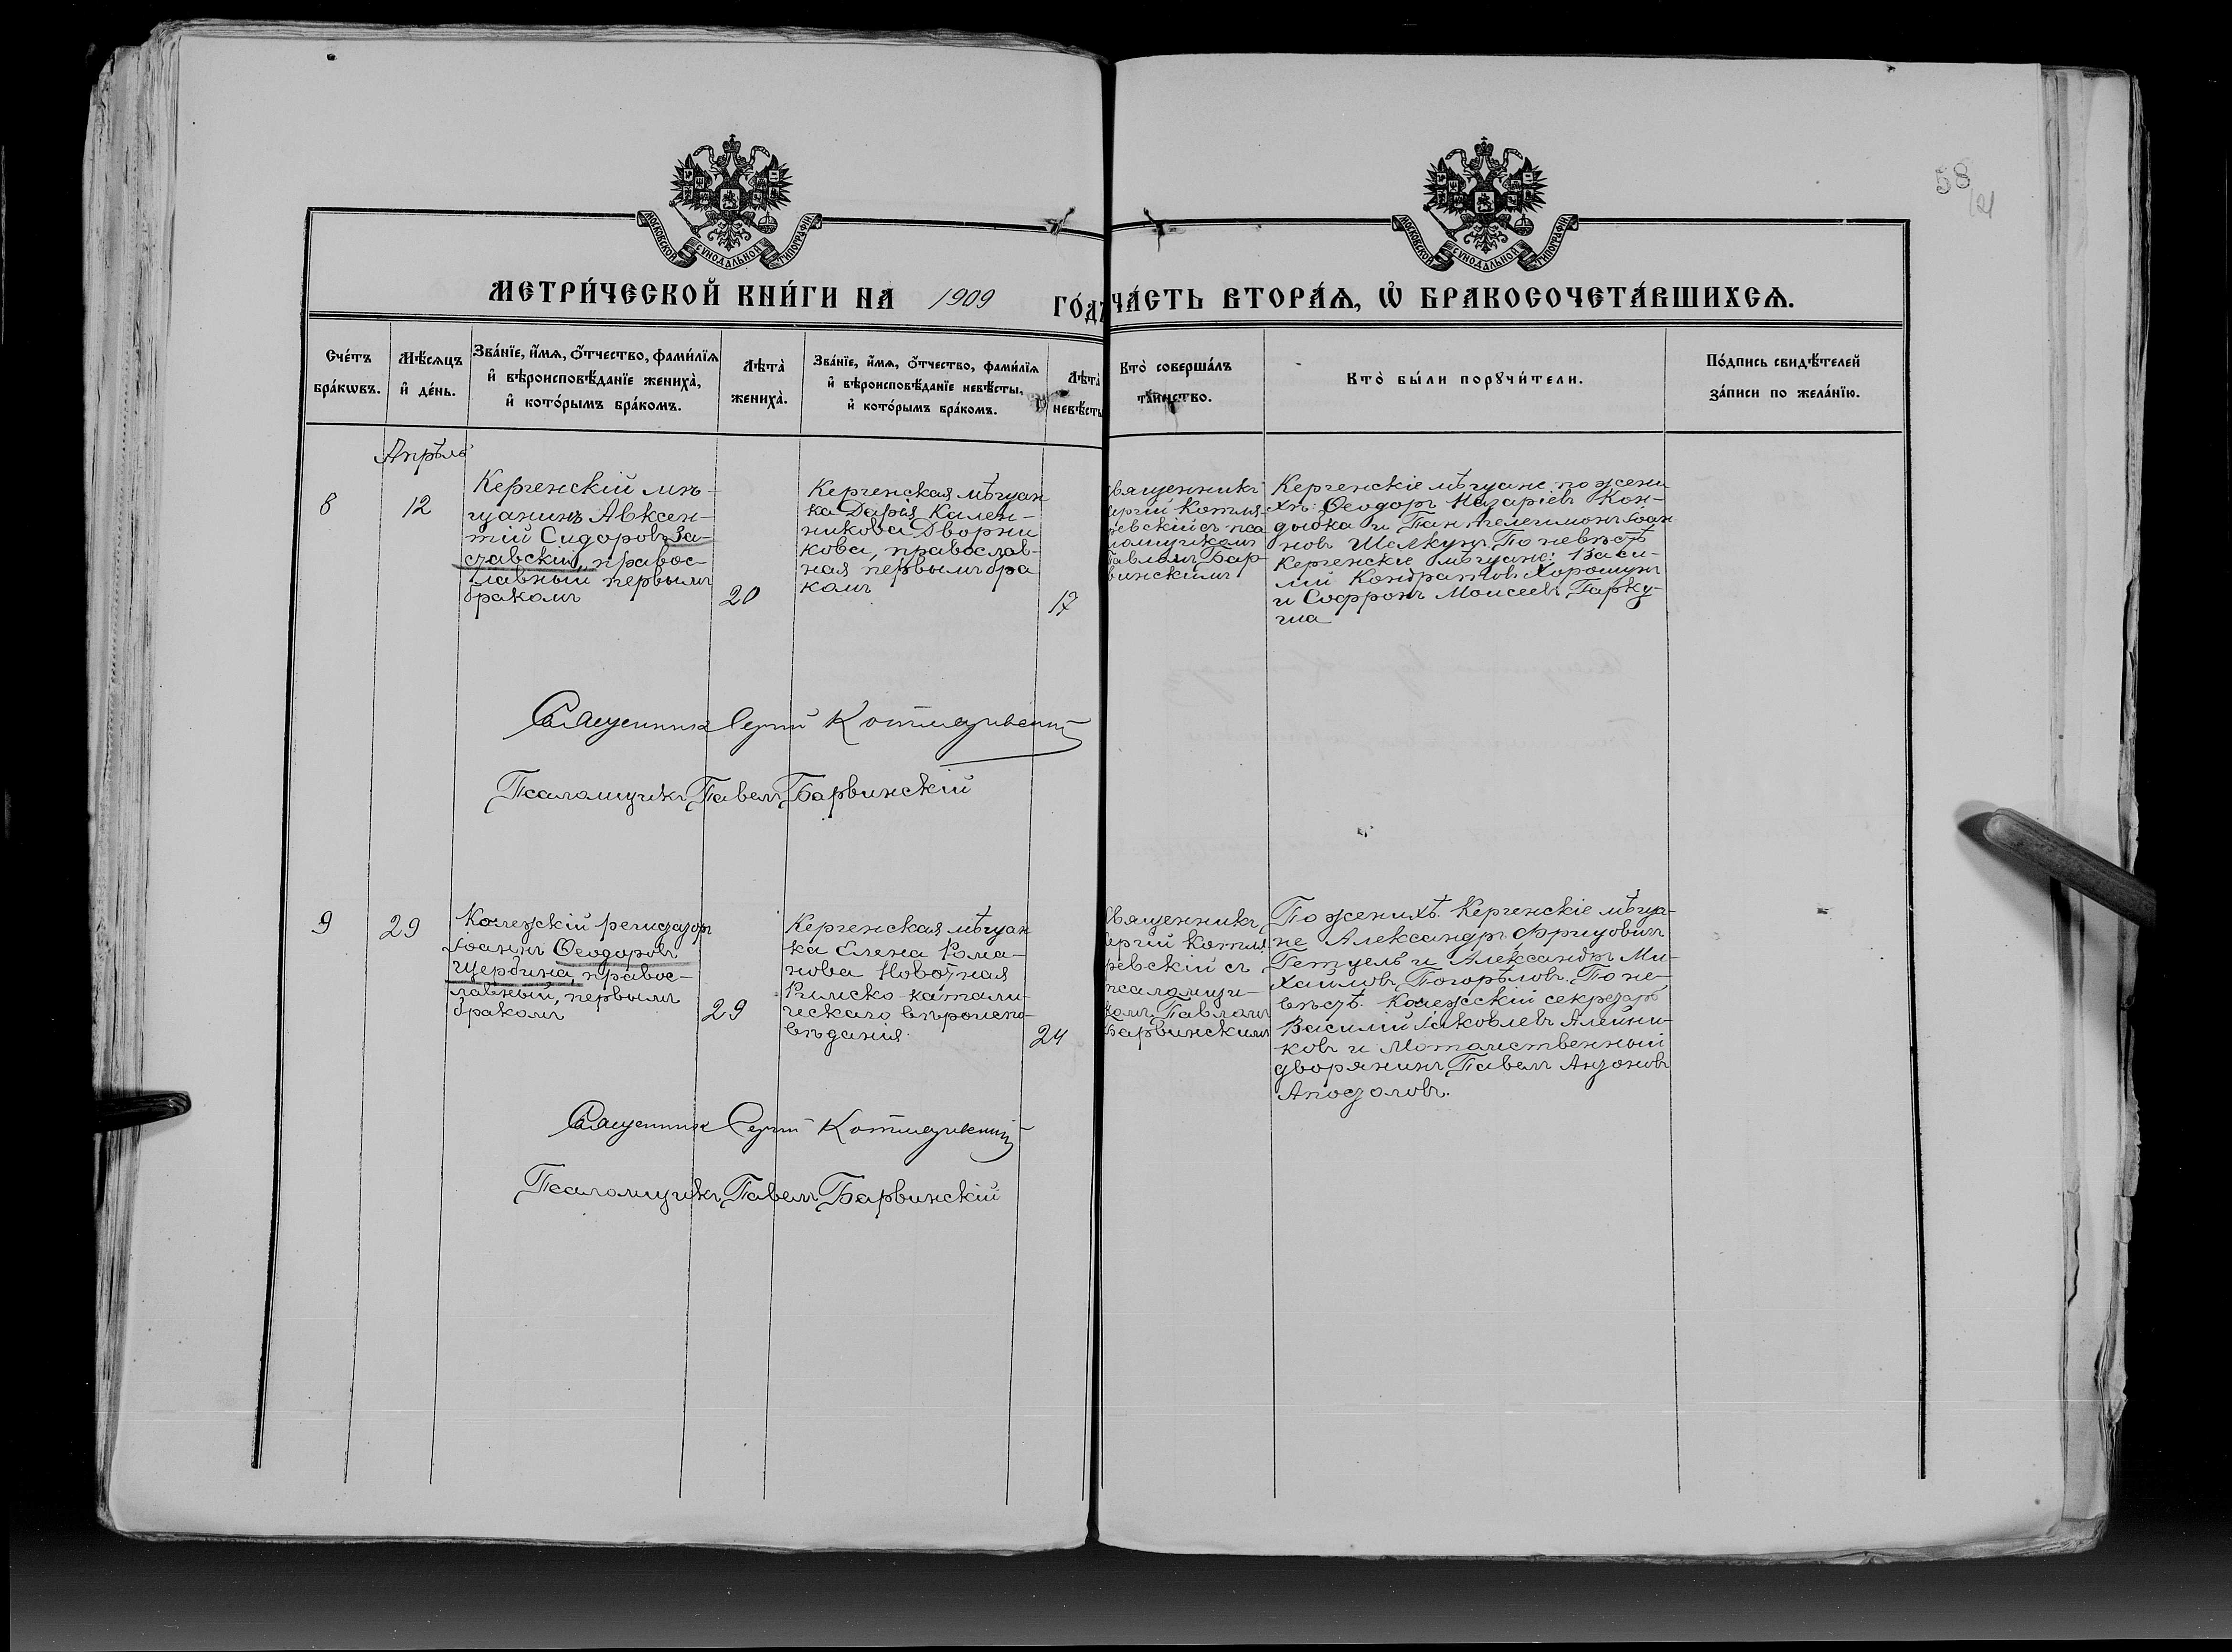 58
МОСКОВСКОЙ СѴНОДАЛЬНОЙ ТИПОГРАФІИ
МОСКОВСКОЙ СѴНОДАЛЬНОЙ ТИПОГРАФІИ
МЕТРИ́ЧЕСКОЙ КНИ́ГИ НА 1909 ГО́ДЪ
ЧА́СТЬ ВТОРА́Ѧ, Ѡ҆ БРАКОСОЧЕТА́ВШИХСѦ.
Сче́тъ
бра́кѡвъ.
Мѣ́сѧцъ
и҆ де́нь.
Зва́нїе, и҆́мѧ, о҆́тчество, фами́лїѧ
и҆ вѣроисповѣ́данїе жениха̀,
и҆ кото́рымъ бра́комъ.
Лѣта̀
жениха̀.
Зва́нїе, и҆́мѧ, о҆́тчество, фами́лїѧ
и҆ вѣроисповѣ́данїе невѣ́сты,
и҆ кото́рымъ бра́комъ.
Лѣта̀
невѣ́сты
Кто̀ соверша́лъ
та́инство.
Кто̀ бы́ли порꙋчи́тели.
По́дпись свидѣ́телей
за́писи по жела́нїю.
Апрѣль
8
12
Керченскій мѣ-
щанинъ Авксен-
тій Сидоровъ За-
славскій, правос-
лавный первымъ
бракомъ
20
Керченская мѣщан
ка Дарія Кален-
никова Дворни
кова, православ-
ная первымъ бра
комъ
17
вященникъ
ергій Котля-
ревскій съ пса
ломщикомъ
Павломъ Бар-
винскимъ
Керченскіе мѣщане по жени
хѣ: Ѳеодоръ Назаріевъ Кон-
дыбка и Пантелеимонъ Іоан
новъ Шалкунъ, По невѣстѣ
Керченскіе мѣщане: Васи-
лій Кондратовъ Хорошунъ
и Софронъ Моисеевъ Гарку-
ша
Священникъ Сергій Котляревскій
Псаломщикъ Павелъ Барвинскій
9
29
Колежскій регистраторъ
Іоаннъ Ѳеодоровъ
Щербина, правос-
лавный, первымъ
бракомъ
29
Керченская мѣщан
ка Елена Рома-
нова Новотная
Римско-католи-
ческаго вѣроиспо-
вѣданія.
24
Священникъ
Сергій Котля
ревскій съ
псаломщи-
комъ Павломъ
Барвинскимъ
По женихѣ: Керченскіе мѣща-
не Александръ Фрицовичъ
Гетцель и Александръ Ми-
хайловъ Погорѣловъ, По не-
вѣстѣ: Колежскій секретарь
Василій Іаковлевъ Алейни-
ковъ и Потомственный
дворянинъ Павелъ Антоновъ
Апостоловъ.
Священникъ Сергій Котляревскій
Псаломщикъ Павелъ Барвинскій